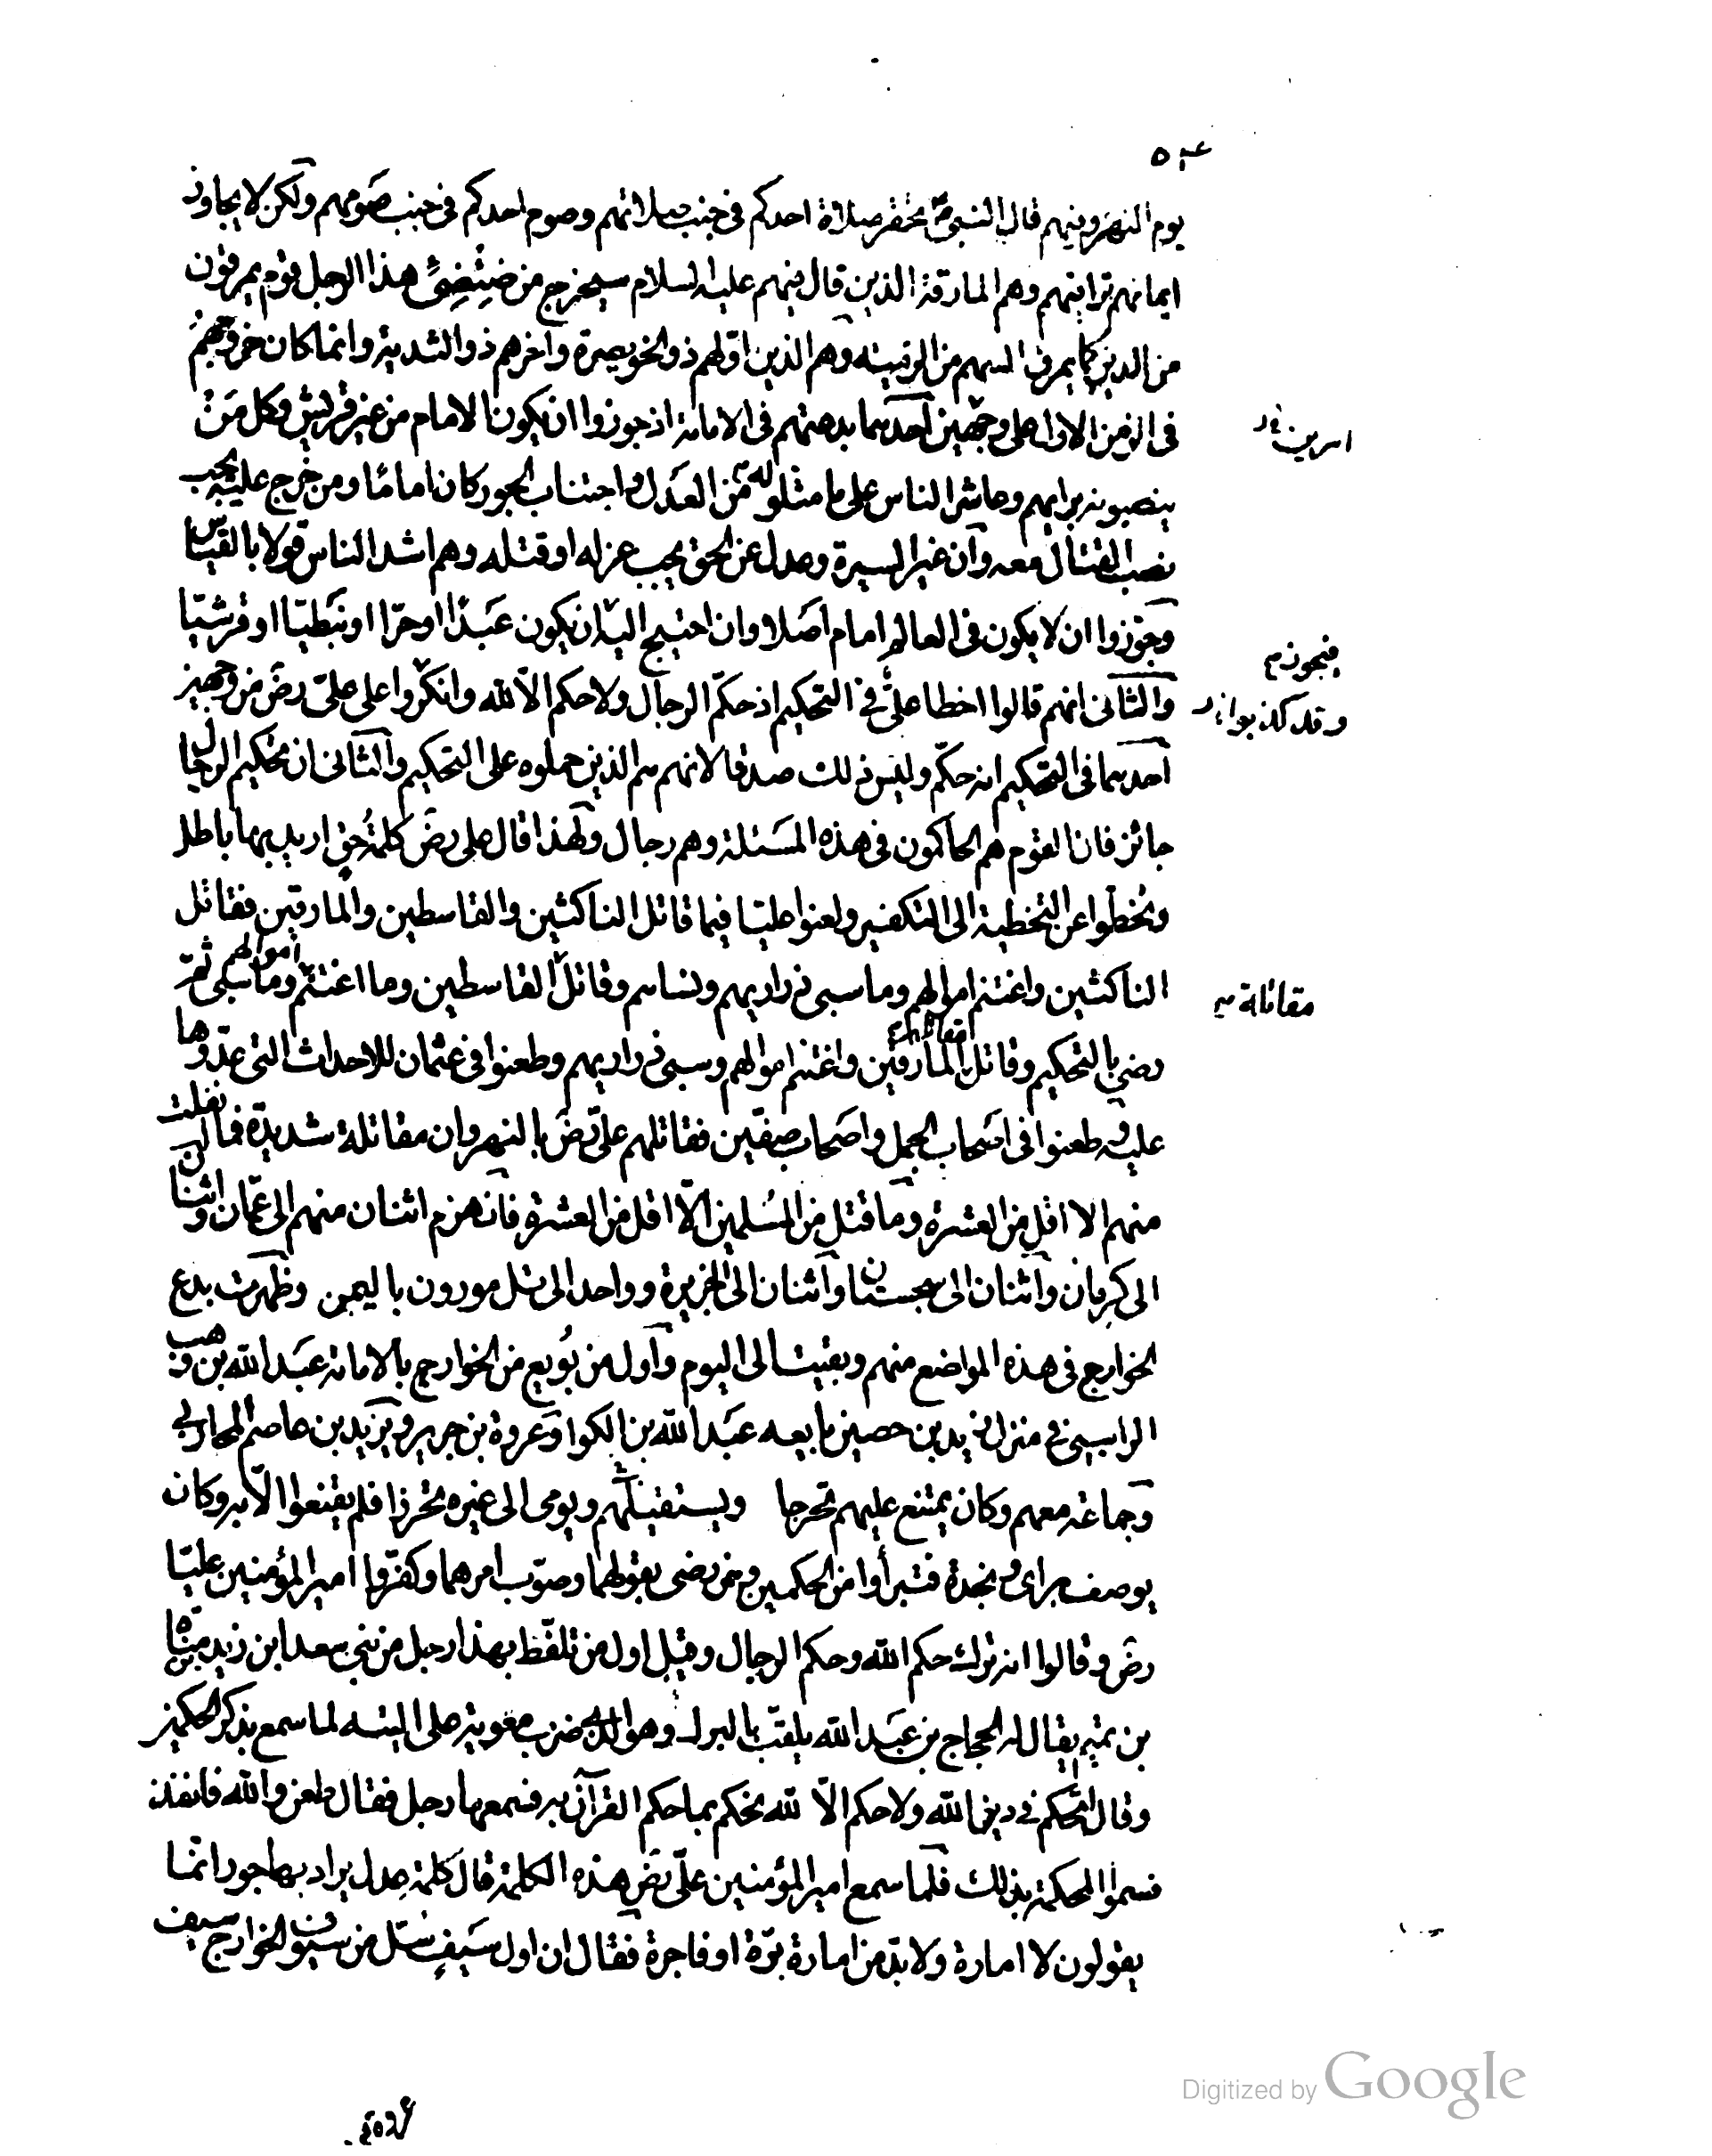 ٥٢٤
يوم النهروفيهم قال النبى ص تحقر صلاة احدكم فى جنب صلاتهم وصوم احدكم فى جنب صومهم ولكن لا يجاوز
ايمانهم تراقيهم وهم المارقة الذين قال فيهم عليه السلام سيخرج من ضئضئ هذا الرجل قوم يمرقون
من الدين كما يمرق السهم من الرمية وهم الذين اولهم ذو الخويصرة واخرهم ذو الثدية وانما كان خروجهم
فى الزمن الاول على وجهين احدهما بدعتهم فى الامامة اذ جوزوا ان يكون الامام من غير قريش وكل من
امرين
ينصبونه برايهم وعاشر الناس على ما مثلوا له من العدل واجتناب الجور كان اماما ومن خرج عليه يجب
نصب القتال معه وان غير السيرة وعدل عن الحق يجب عزله او قتله وهم اشد الناس قولا بالقياس
وجوزوا ان لا يكون فى العالم امام اصلا وان احتيج اليه ان يكون عبدا او حرا او نبطيا او قرشيا
فيجوز
والثانى انهم قالوا اخطا على فى التحكيم اذ حكم الرجال ولا حكم الا لله وانكروا على على رض من وجهين
وقد كذبوا
احدهما فى التحكيم انه حكم وليس ذلك صدقا لانهم هم الذين حملوه على التحكيم والثانى ان تحكيم الرجال
جائز فان القوم هم الحاكمون فى هذه المسئلة وهم رجال ولهذا قال على رض كلمة حق اريد بها باطل
وتخطوا عن التخطية الى التكفير ولعنوا عليا فيما قاتل الناكثين والقاسطين والمارقين فقاتل
الناكثين واغتنم اموالهم وما سبى ذراريهم ونساءهم وقاتل القاسطين وما اغتنم اموالهم وما سبى ثم
مقاتلة
رضى بالتحكيم وقاتل المارقين واغتنم اموالهم وسبى ذراريهم وطعنوا فى عثمان للاحداث التى عدوها
عليه وطعنوا فى اصحاب الجمل واصحاب صفين فقاتلهم على رض بالنهروان مقاتلة شديدة فما انفلت
منهم الا اقل من العشرة وما قتل من المسلمين الا اقل من العشرة فانهزم اثنان منهم الى عمان واثنان
الى كرمان واثنان الى سجستان واثنان الى الجزيرة وواحد الى تل مورون باليمن وظهرت بدع
الخوارج فى هذه المواضع منهم وبقيت الى اليوم واول من بويع من الخوارج بالامامة عبد الله بن وهب
الراسبى فى منزل زيد بن حصين بايعه عبد الله بن الكوا وعروة بن جرير ويزيد بن عاصم المحاربى
وجماعة معهم وكان يمتنع عليهم تحرجا ويستقيلهم ويومى الى غيره تحرزا فلم يقنعوا الا به وكان
يوصف براى ونجدة فتبرأوا من الحكمين وممن رضى بقولهما وصوب امرهما وكفروا امير المؤمنين عليا
رض وقالوا انه ترك حكم الله وحكم الرجال وقيل اول من تلفظ بهذا رجل من بنى سعد ابن زيد مناة
بن تميم يقال له الحجاج بن عبد الله يلقب بالبرك وهو الذى ضرب معوية على اليته لما سمع بذكر الحكمين
وقال اتحكم فى دين الله ولا حكم الا لله نحكم بما حكم القرآن به فسمعها رجل فقال طعن والله فانفذ
فسموا المحكمة بذلك فلما سمع امير المؤمنين على رض هذه الكلمة قال كلمة عدل يراد بها جور انما
يقولون لا امارة ولا بد من امارة برة او فاجرة فقال ان اول سيف سل من سيوف الخوارج سيف
Digitized by Google